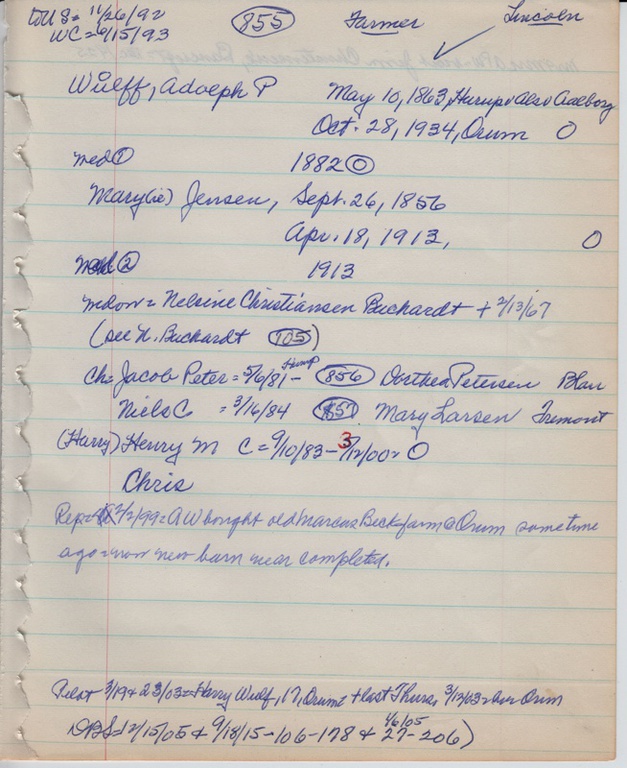 to U S = 11/26/92 855 Farmer Lincoln
WC = 6/15/93
Wulff, Adolph P May 10, 1863, Hurup also Aalborg
Oct. 28, 1934, Orum O
med ① 1882 ⓪
Mary(ie) Jensen, Sept. 26, 1856
Apr. 18, 1913, O
med ② 1913
mdow = Nelsine Christiansen Buchardt + 2/13/67
(see N. Buchardt 705)
Ch = Jacob Peter = 5/6/81 - Hurup 856 Dorthea Petersen Blair
Niels C = 3/16/84 857 Mary Larsen Fremont
(Harry) Henry M C = 9/10/83 - 3/12/00 = O
Chris
Rept 2/2/99 = AW bought old Marcus Beck farm @ Orum sometime
ago = now new barn near completed.
Pilot 3/19 & 23/03 = Harry Wulf, 17, Orum + last Thurs. 3/12/03 = Orum
DBS = 12/15/05 & 9/18/15 - 106 - 178 & 27 - 206)